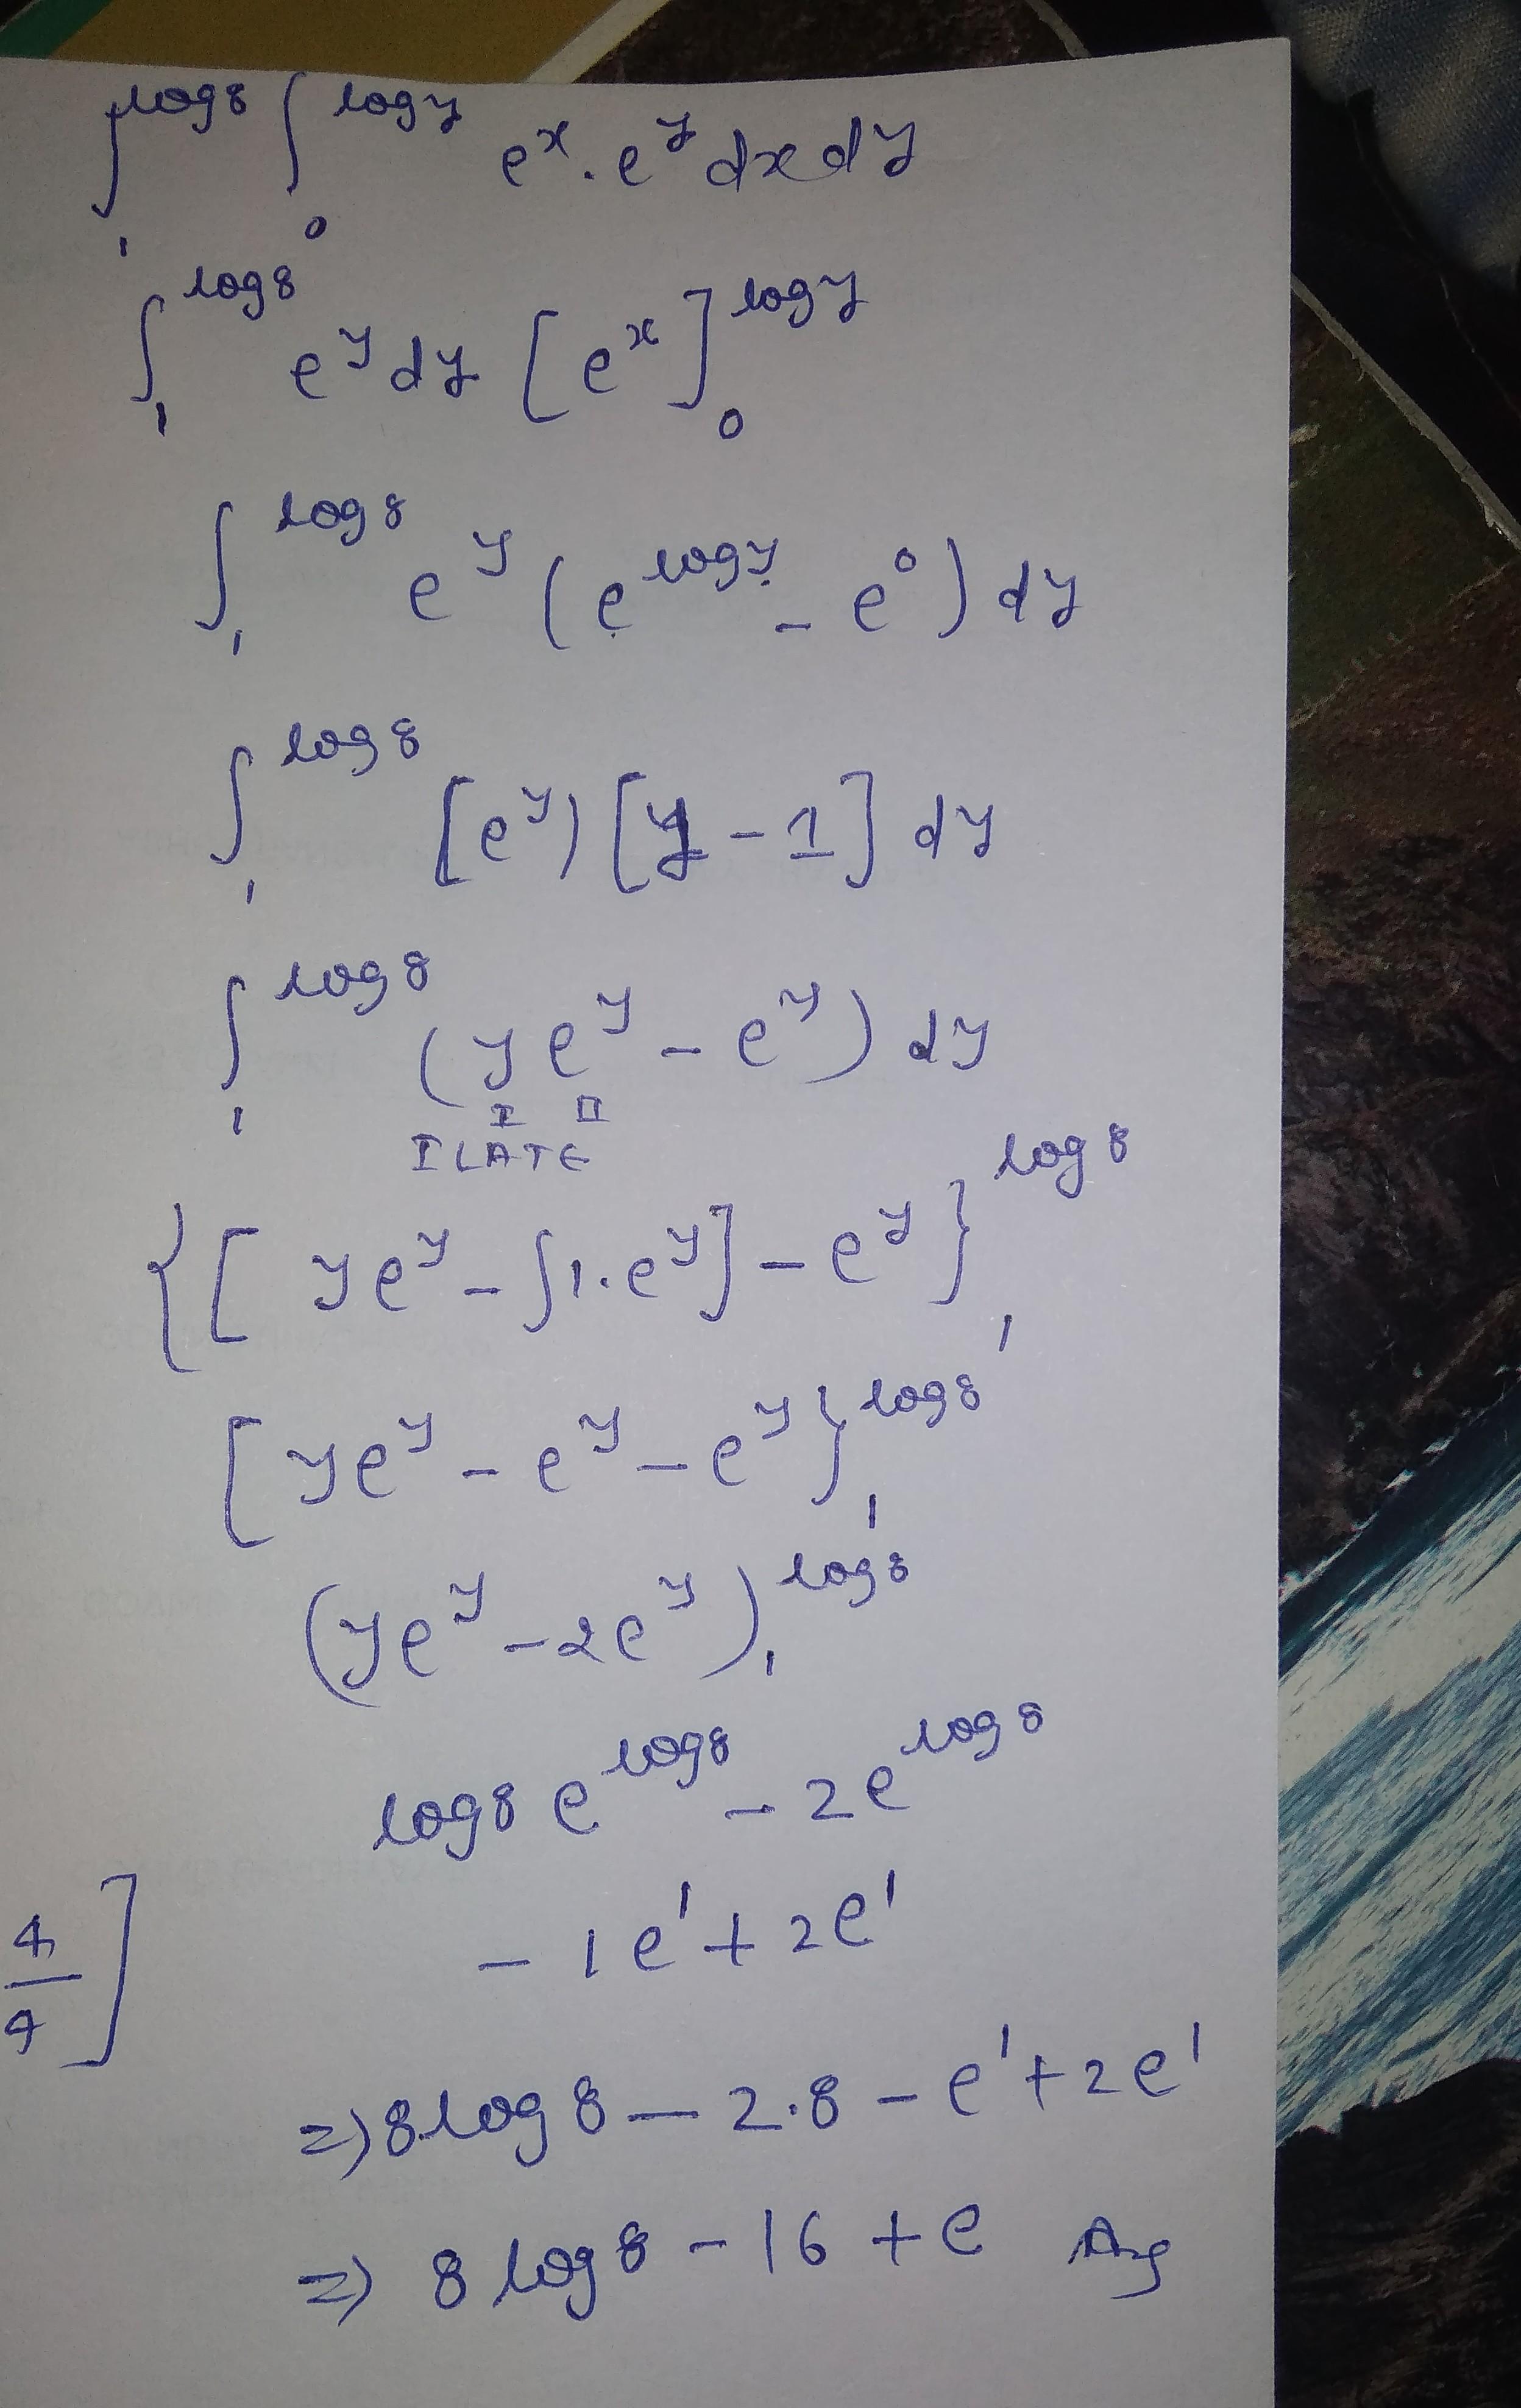 ∫₁^{log 8} ∫₀^{log y} e^x . e^y dx dy
∫₁^{log 8} e^y dy [e^x]₀^{log y}
∫₁^{log 8} e^y (e^{log y} - e^0) dy
∫₁^{log 8} [e^y) [y - 1] dy
∫₁^{log 8} (y e^y - e^y) dy
I II
ILATE
{[ y e^y - ∫1.e^y] - e^y}₁^{log 8}
[ y e^y - e^y - e^y}₁^{log 8}
(y e^y - 2e^y)₁^{log 8}
log 8 e^{log 8} - 2e^{log 8}
- 1 e^1 + 2e^1
=) 8 log 8 - 2.8 - e^1 + 2e^1
=) 8 log 8 - 16 + e